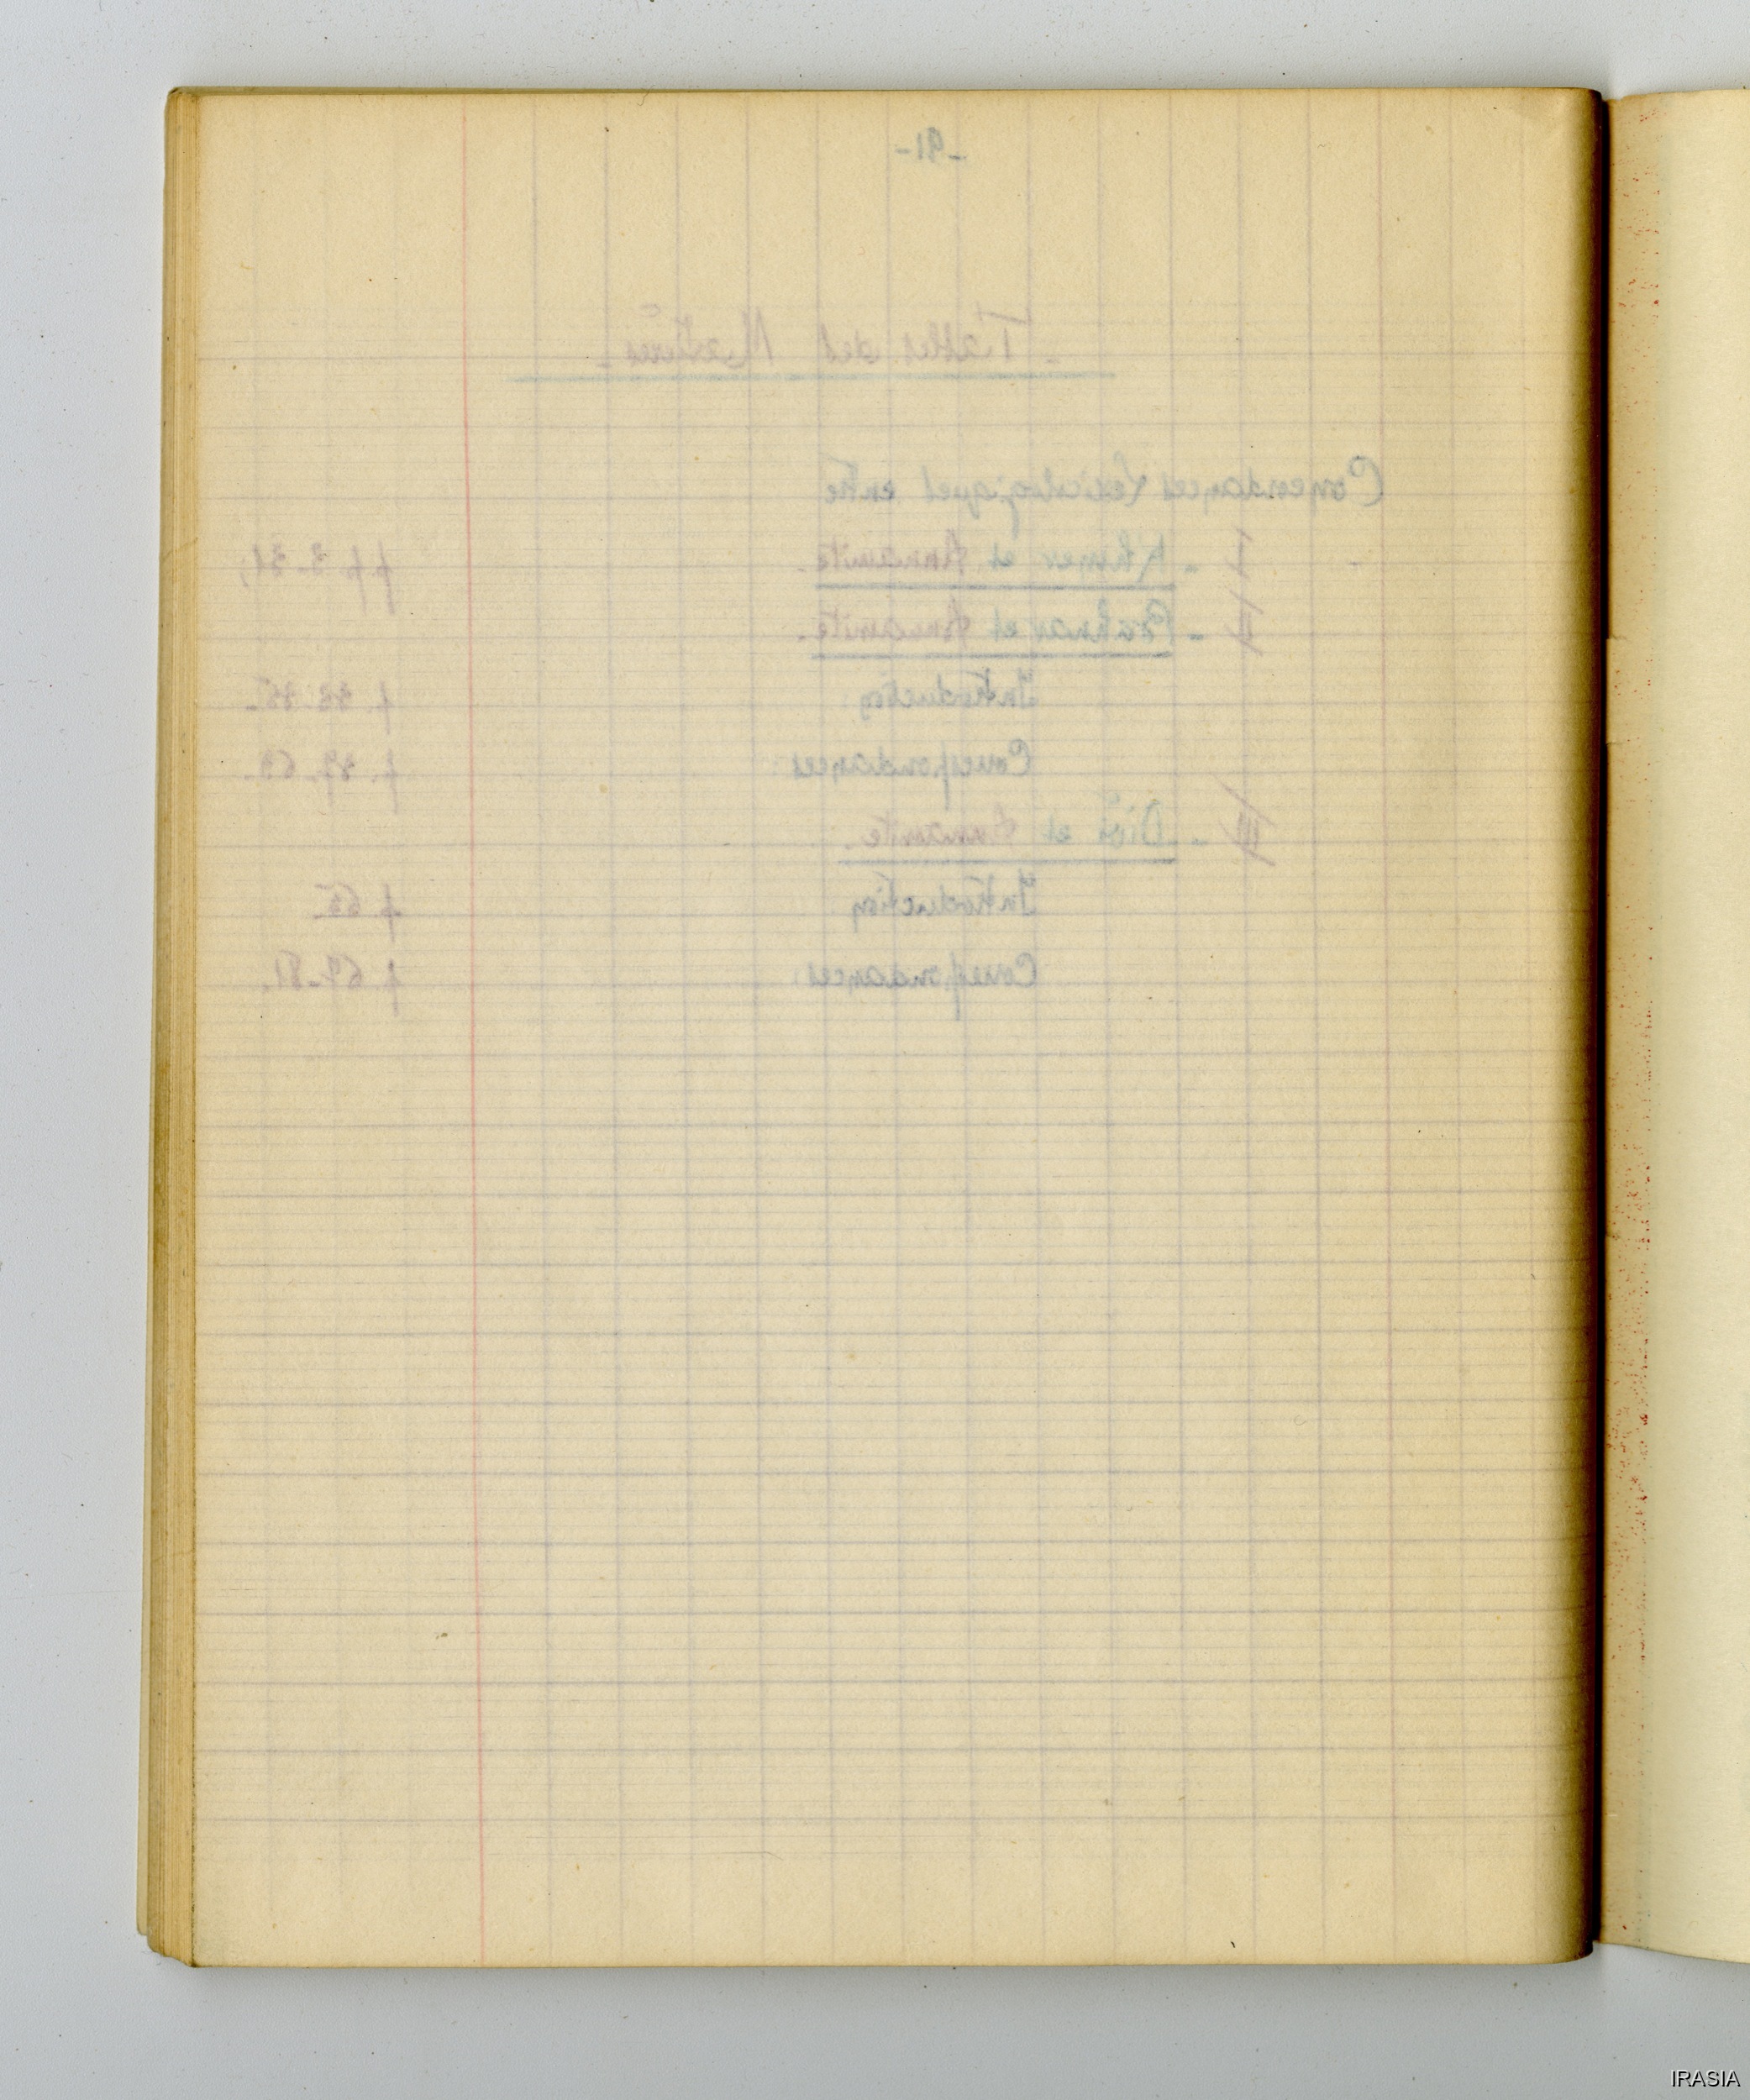 - 91 -
- Tables des Matières -
Concordances Lexicologiques entre
I - Khmer et Annamite. pp 3-31,
II - Bahnar et Annamite.
Introduction: p. 33.35.
Correspondances: p. 37.63.
III - Dioi et Annamite.
Introduction p 65
Correspondances: p 67-81.
IRASIA